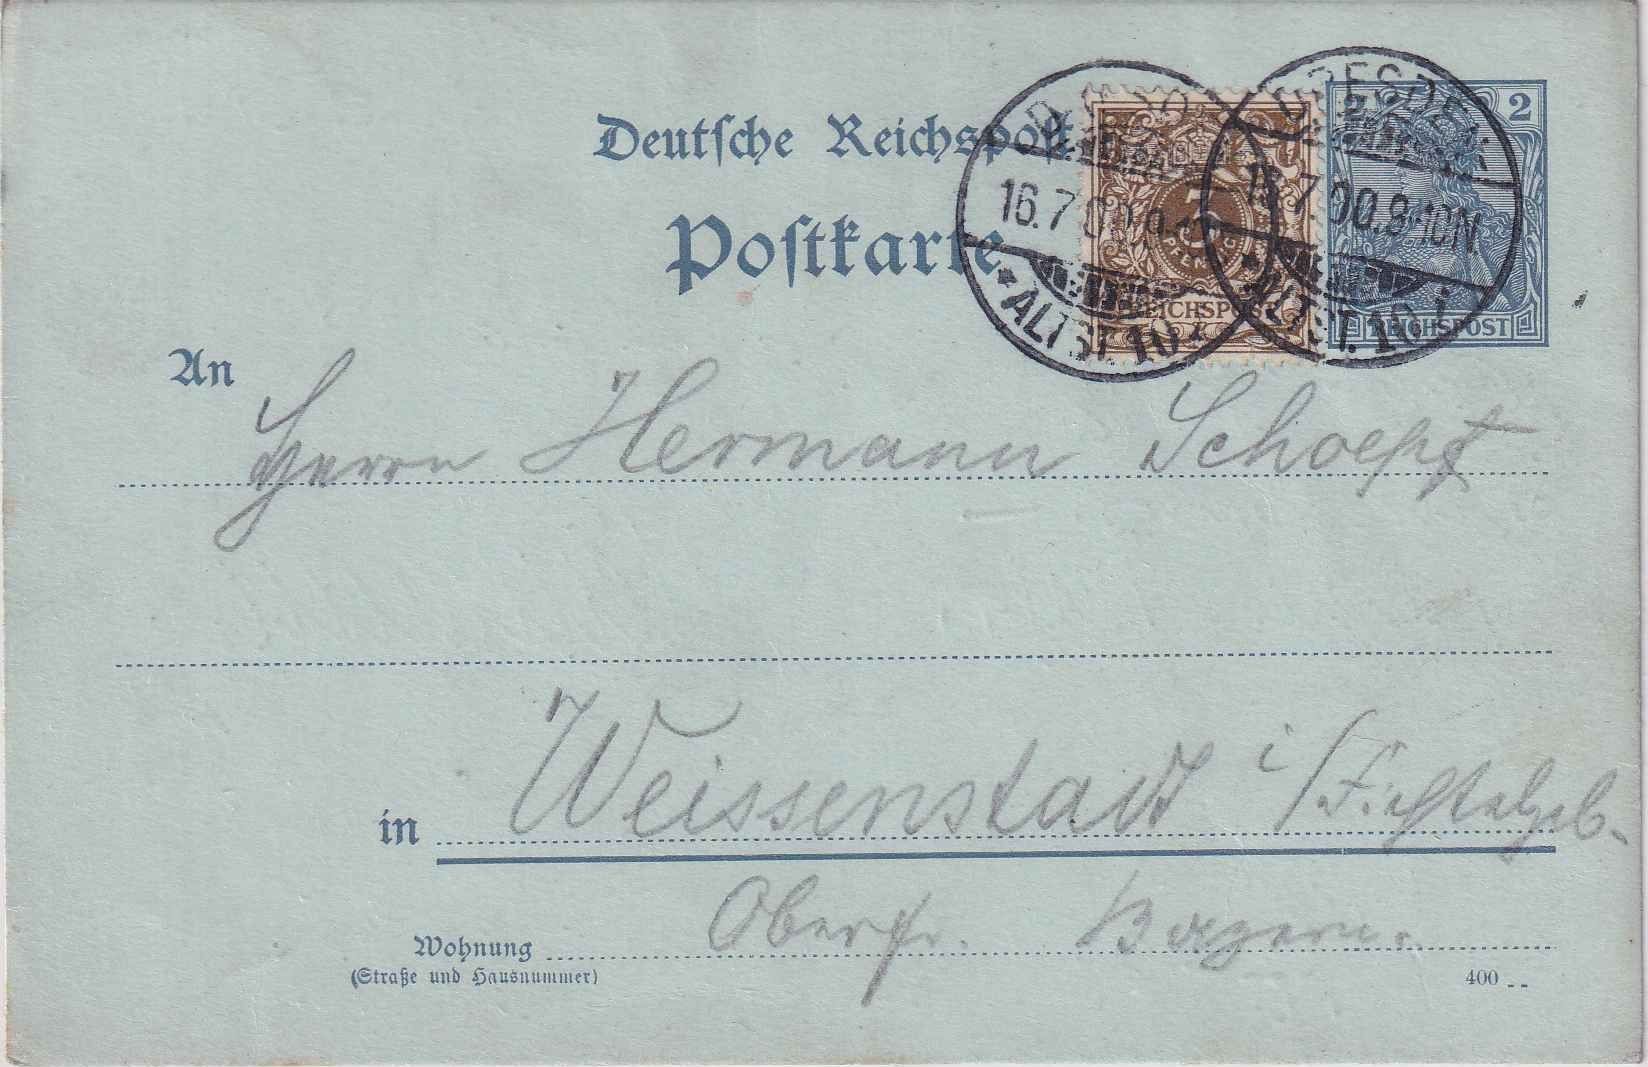 Deutsche Reichspost
Postkarte
DRESDEN
16.7.00.
* ALTST. 10 i
3
PFENNIG
REICHSPOST
DRESDEN
16.7.00.8-10N.
* ALTST. 10 i
2 2
REICHSPOST
An
Herrn Hermann Schoepf
in Weissenstadt i/Fichtelgeb.
Oberfr. Bayern.
Wohnung
(Straße und Hausnummer)
400